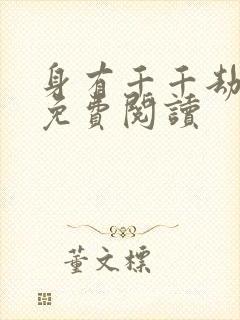 身有千千劫
免費閱讀
董文標